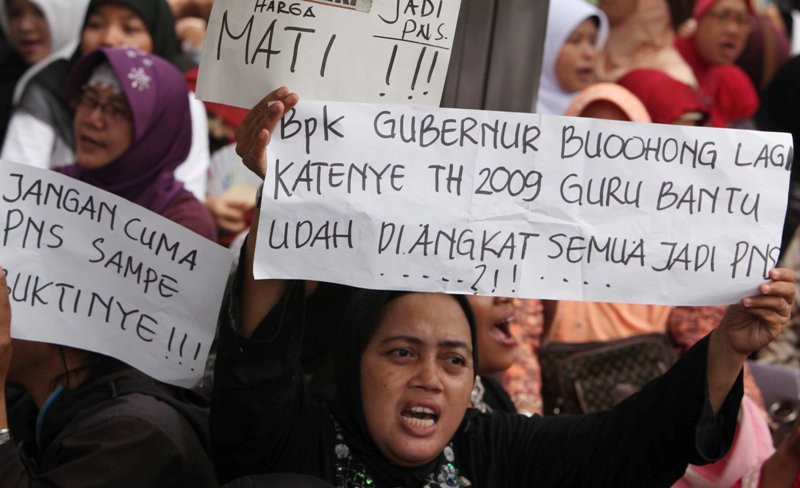 HARGA
MATI
JADI
PNS.
!!!
BPK GUBERNUR BUOOHONG LAGI
KATENYE TH 2009 GURU BANTU
UDAH DI.ANGKAT SEMUA JADI PNS
.....?!!....
JANGAN CUMA
PNS SAMPE
BUKTINYE !!!